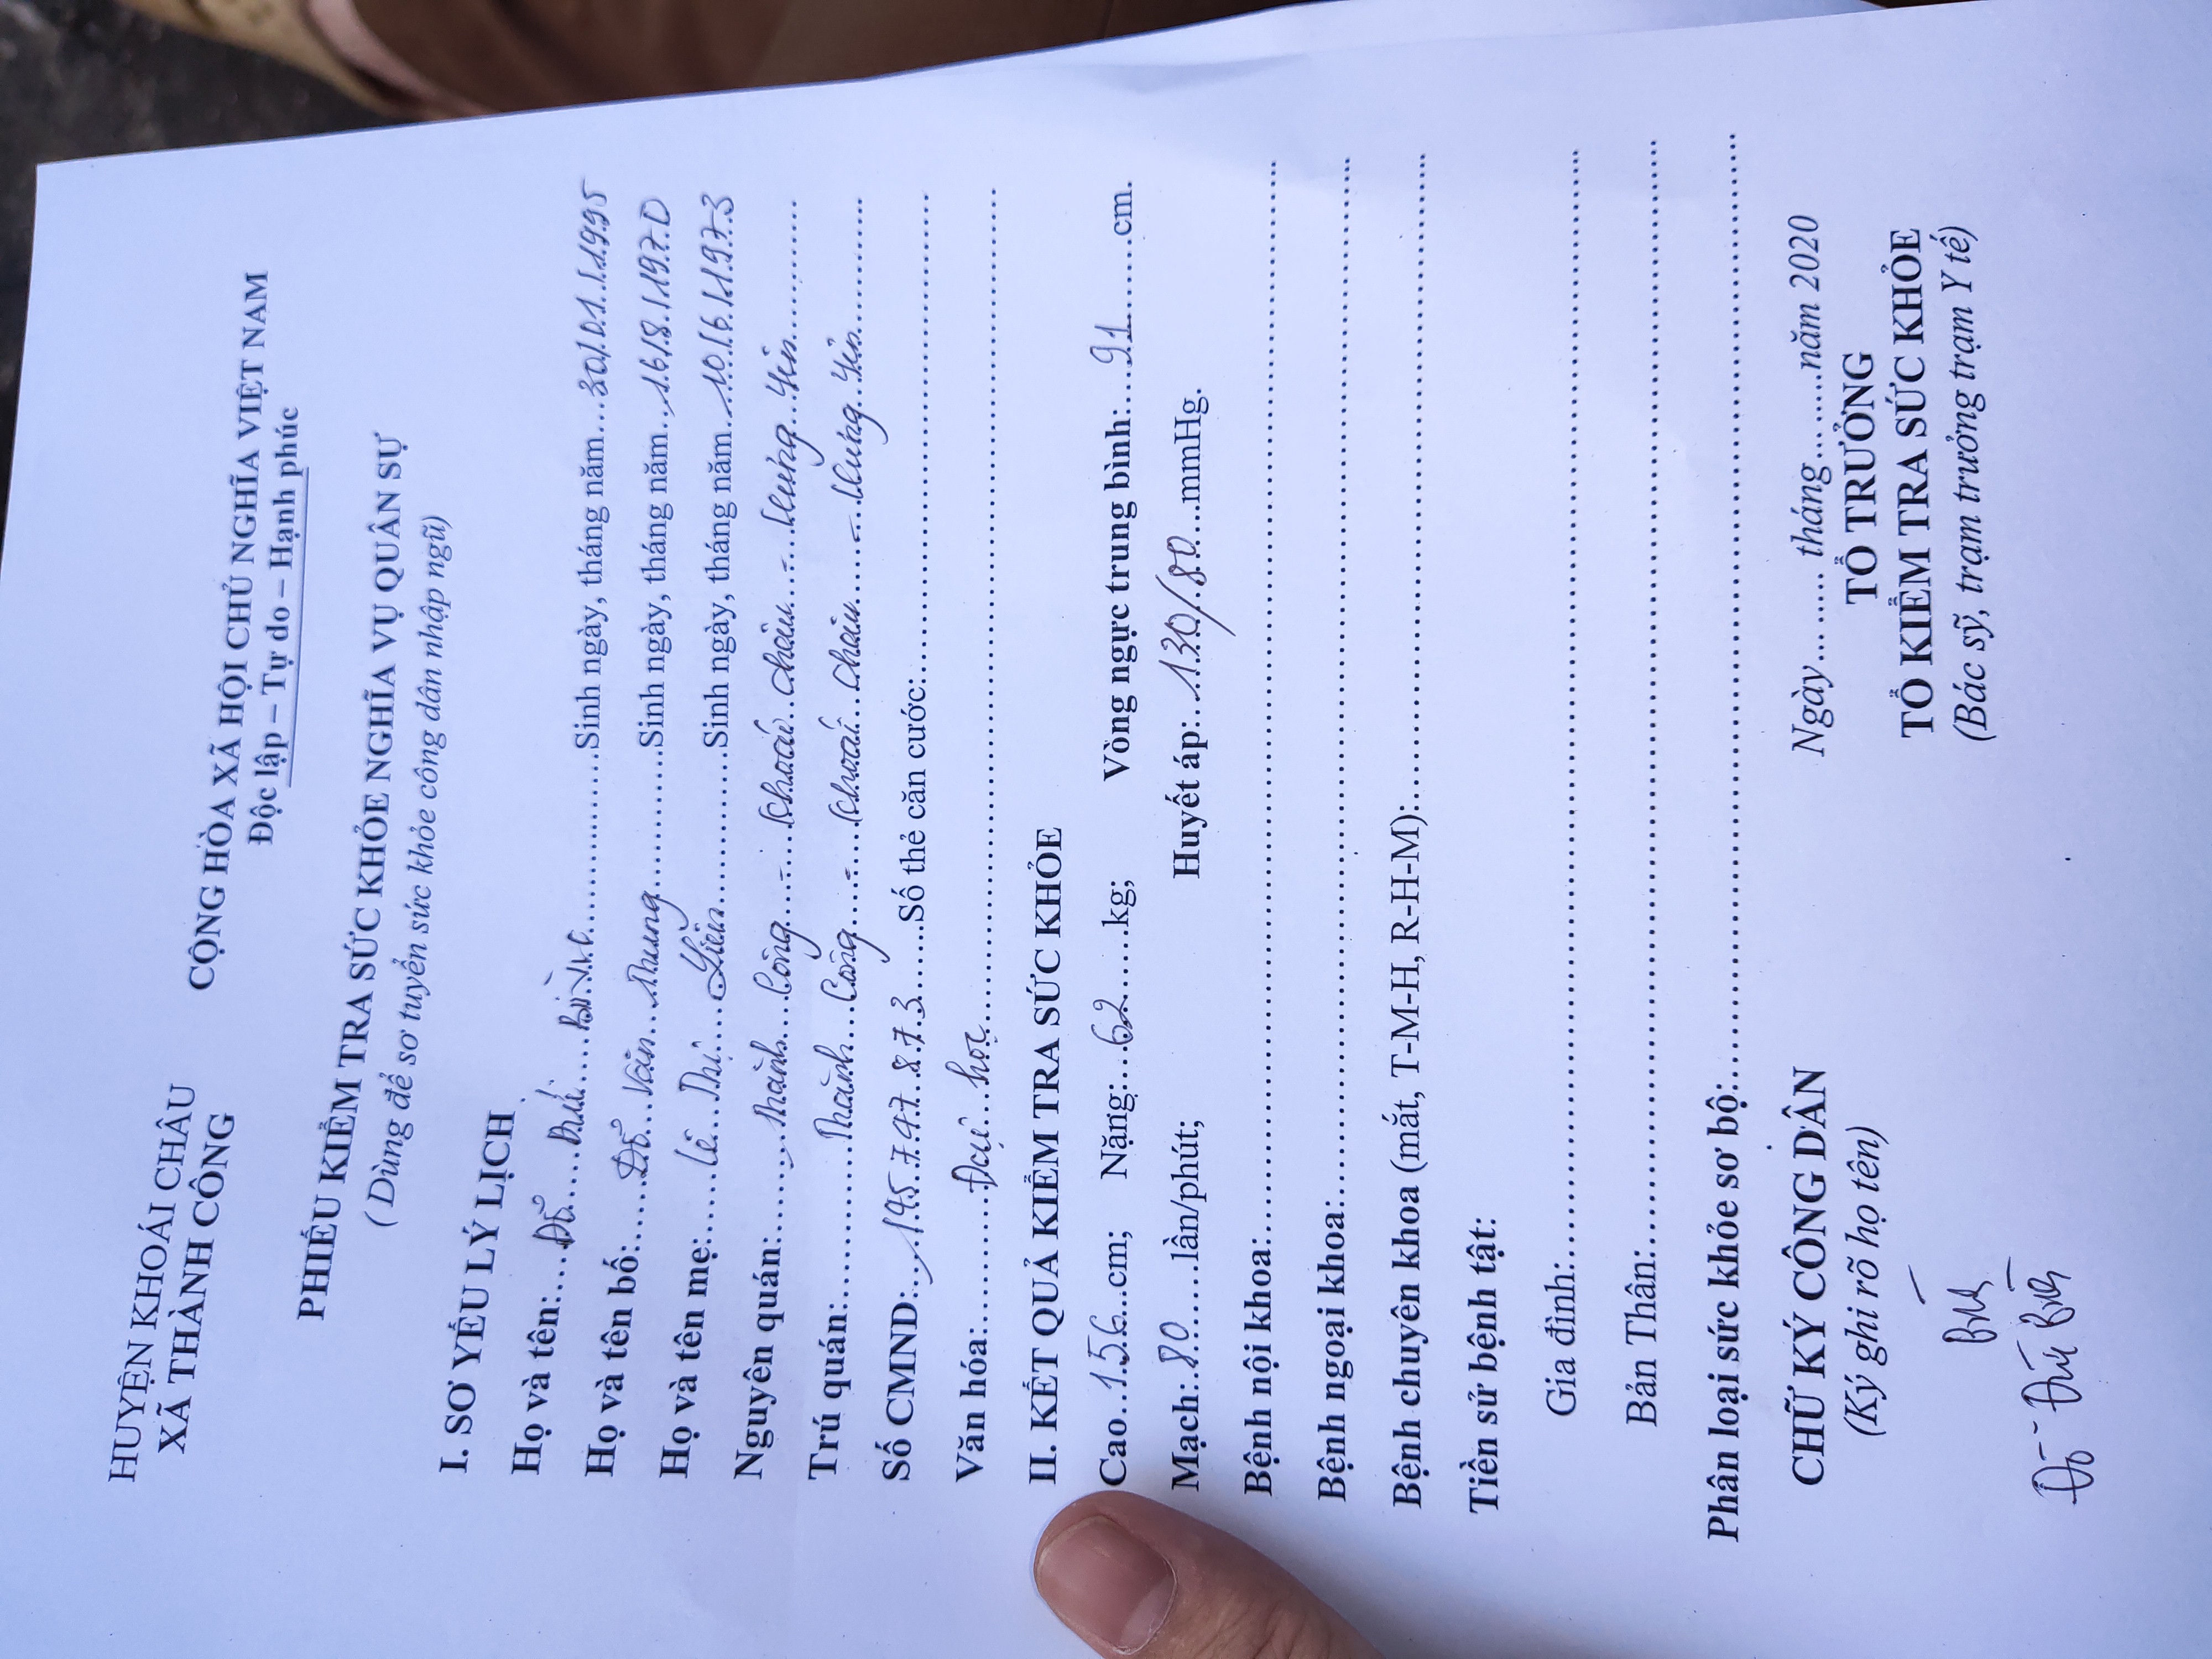 HUYỆN KHOÁI CHÂU
XÃ THÀNH CÔNG
CỘNG HÒA XÃ HỘI CHỦ NGHĨA VIỆT NAM
Độc lập – Tự do – Hạnh phúc
PHIẾU KIỂM TRA SỨC KHỎE NGHĨA VỤ QUÂN SỰ
( Dùng để sơ tuyển sức khỏe công dân nhập ngũ)
I. SƠ YẾU LÝ LỊCH
Họ và tên:....Đỗ..............Sinh ngày, tháng năm...30/01/1995
Họ và tên bố:....Đỗ...Văn...Nhung............Sinh ngày, tháng năm..16/8/1970
Họ và tên mẹ:....Lê...Thị...Liên............Sinh ngày, tháng năm..10/6/1973
Nguyên quán:......Thành...Công...-...Khoái..Châu...-...Hưng..Yên............
Trú quán:............Thành...Công...-...Khoái..Châu...-...Hưng..Yên............
Số CMND:..145747873......Số thẻ căn cước:..............................
Văn hóa:............Đại..học..............................
II. KẾT QUẢ KIỂM TRA SỨC KHỎE
Cao..156..cm; Nặng:...62......kg; Vòng ngực trung bình:...91.......cm.
Mạch:.80.......lần/phút; Huyết áp:..130/80...mmHg.
Bệnh nội khoa:..............................
Bệnh ngoại khoa:..............................
Bệnh chuyên khoa (mắt, T-M-H, R-H-M):..............................
Tiền sử bệnh tật:
Gia đình:..............................
Bản Thân:..............................
Phân loại sức khỏe sơ bộ:..............................
Ngày....... tháng........năm 2020
CHỮ KÝ CÔNG DÂN
(Ký ghi rõ họ tên)
TỔ TRƯỞNG
TỔ KIỂM TRA SỨC KHỎE
(Bác sỹ, trạm trưởng trạm Y tế)
Đỗ